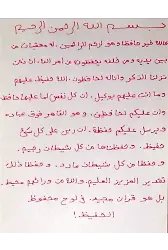 بسم الله الرحمن الرحيم
فالله خير حافظا وهو أرحم الراحمين، له معقبات من
بين يديه ومن خلفه يحفظونه من أمر الله، إنا نحن
نزلنا الذكر وإنا له لحافظون، الله حفيظ عليهم
وما أنت عليهم بوكيل، إن كل نفس لما عليها حافظ
وإن عليكم لحافظين، وهو القاهر فوق عباده
ويرسل عليكم حفظة، إن ربي على كل شيء
حفيظ، وحفظناها من كل شيطان رجيم،
وحفظا من كل شيطان مارد، وحفظا ذلك
تقدير العزيز العليم، والله من ورائهم محيط،
بل هو قرآن مجيد، في لوح محفوظ
الحفيظ!